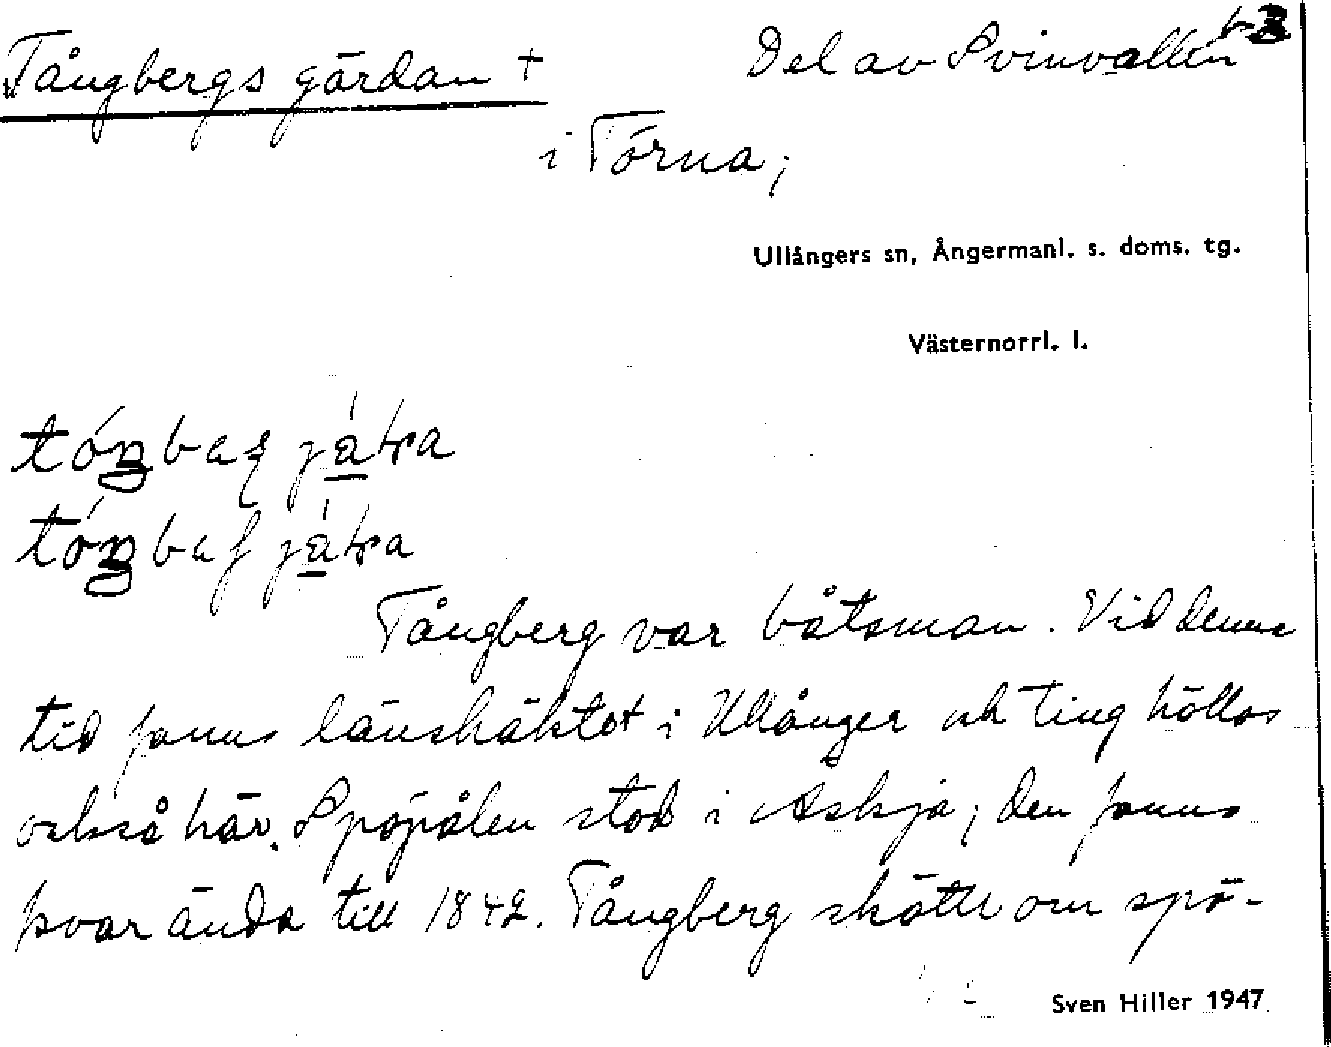 Tångbergs gärdan † Del av Svinvallen
i Törna,
Ullångers sn, Ångermanl. s. doms. tg.
Västernorrl. l.
Tångberg var båtsman. Vid denna
tid fanns länshäktet i Ullånger och ting hölls
också här. Spöpålen stod i Askja; den fanns
kvar ända till 1842. Tångberg skötte om spö-
Sven Hiller 1947